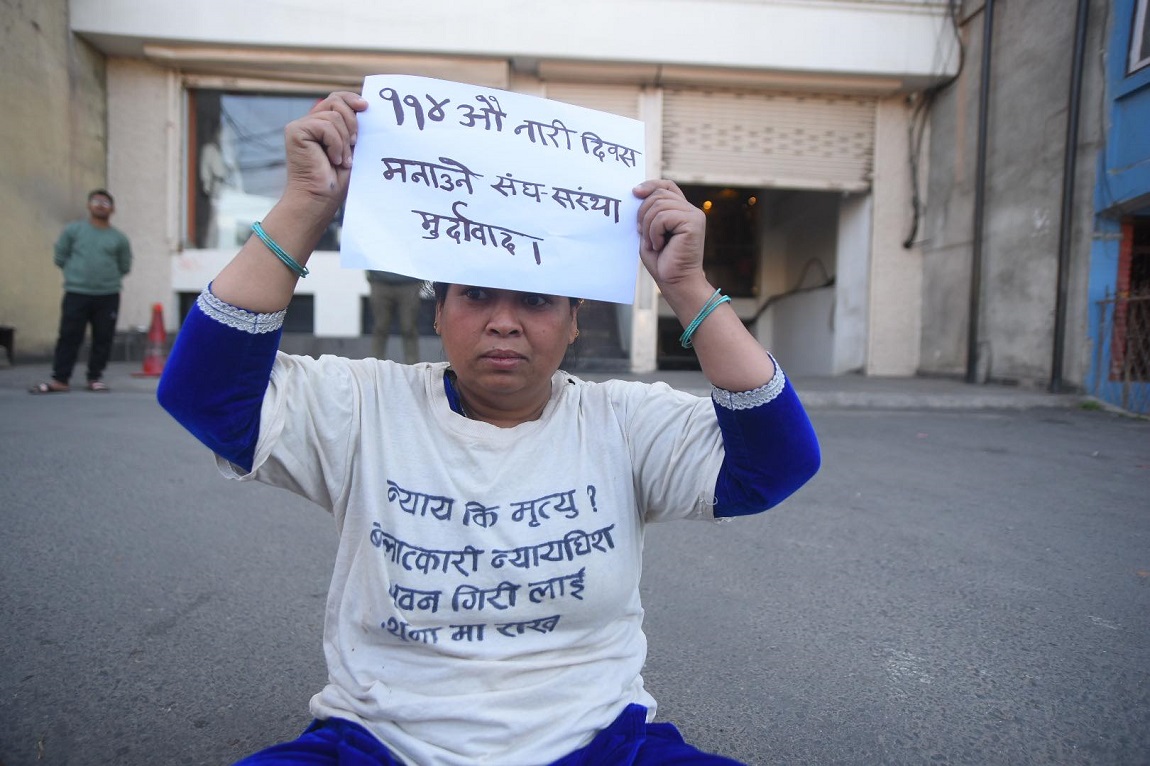 ११४ औ नारी दिवस
मनाउने संघ-संस्था
मुर्दावाद ।
न्याय कि मृत्यु ?
बलात्कारी न्यायधिश
पवन गिरी लाई
मा राख